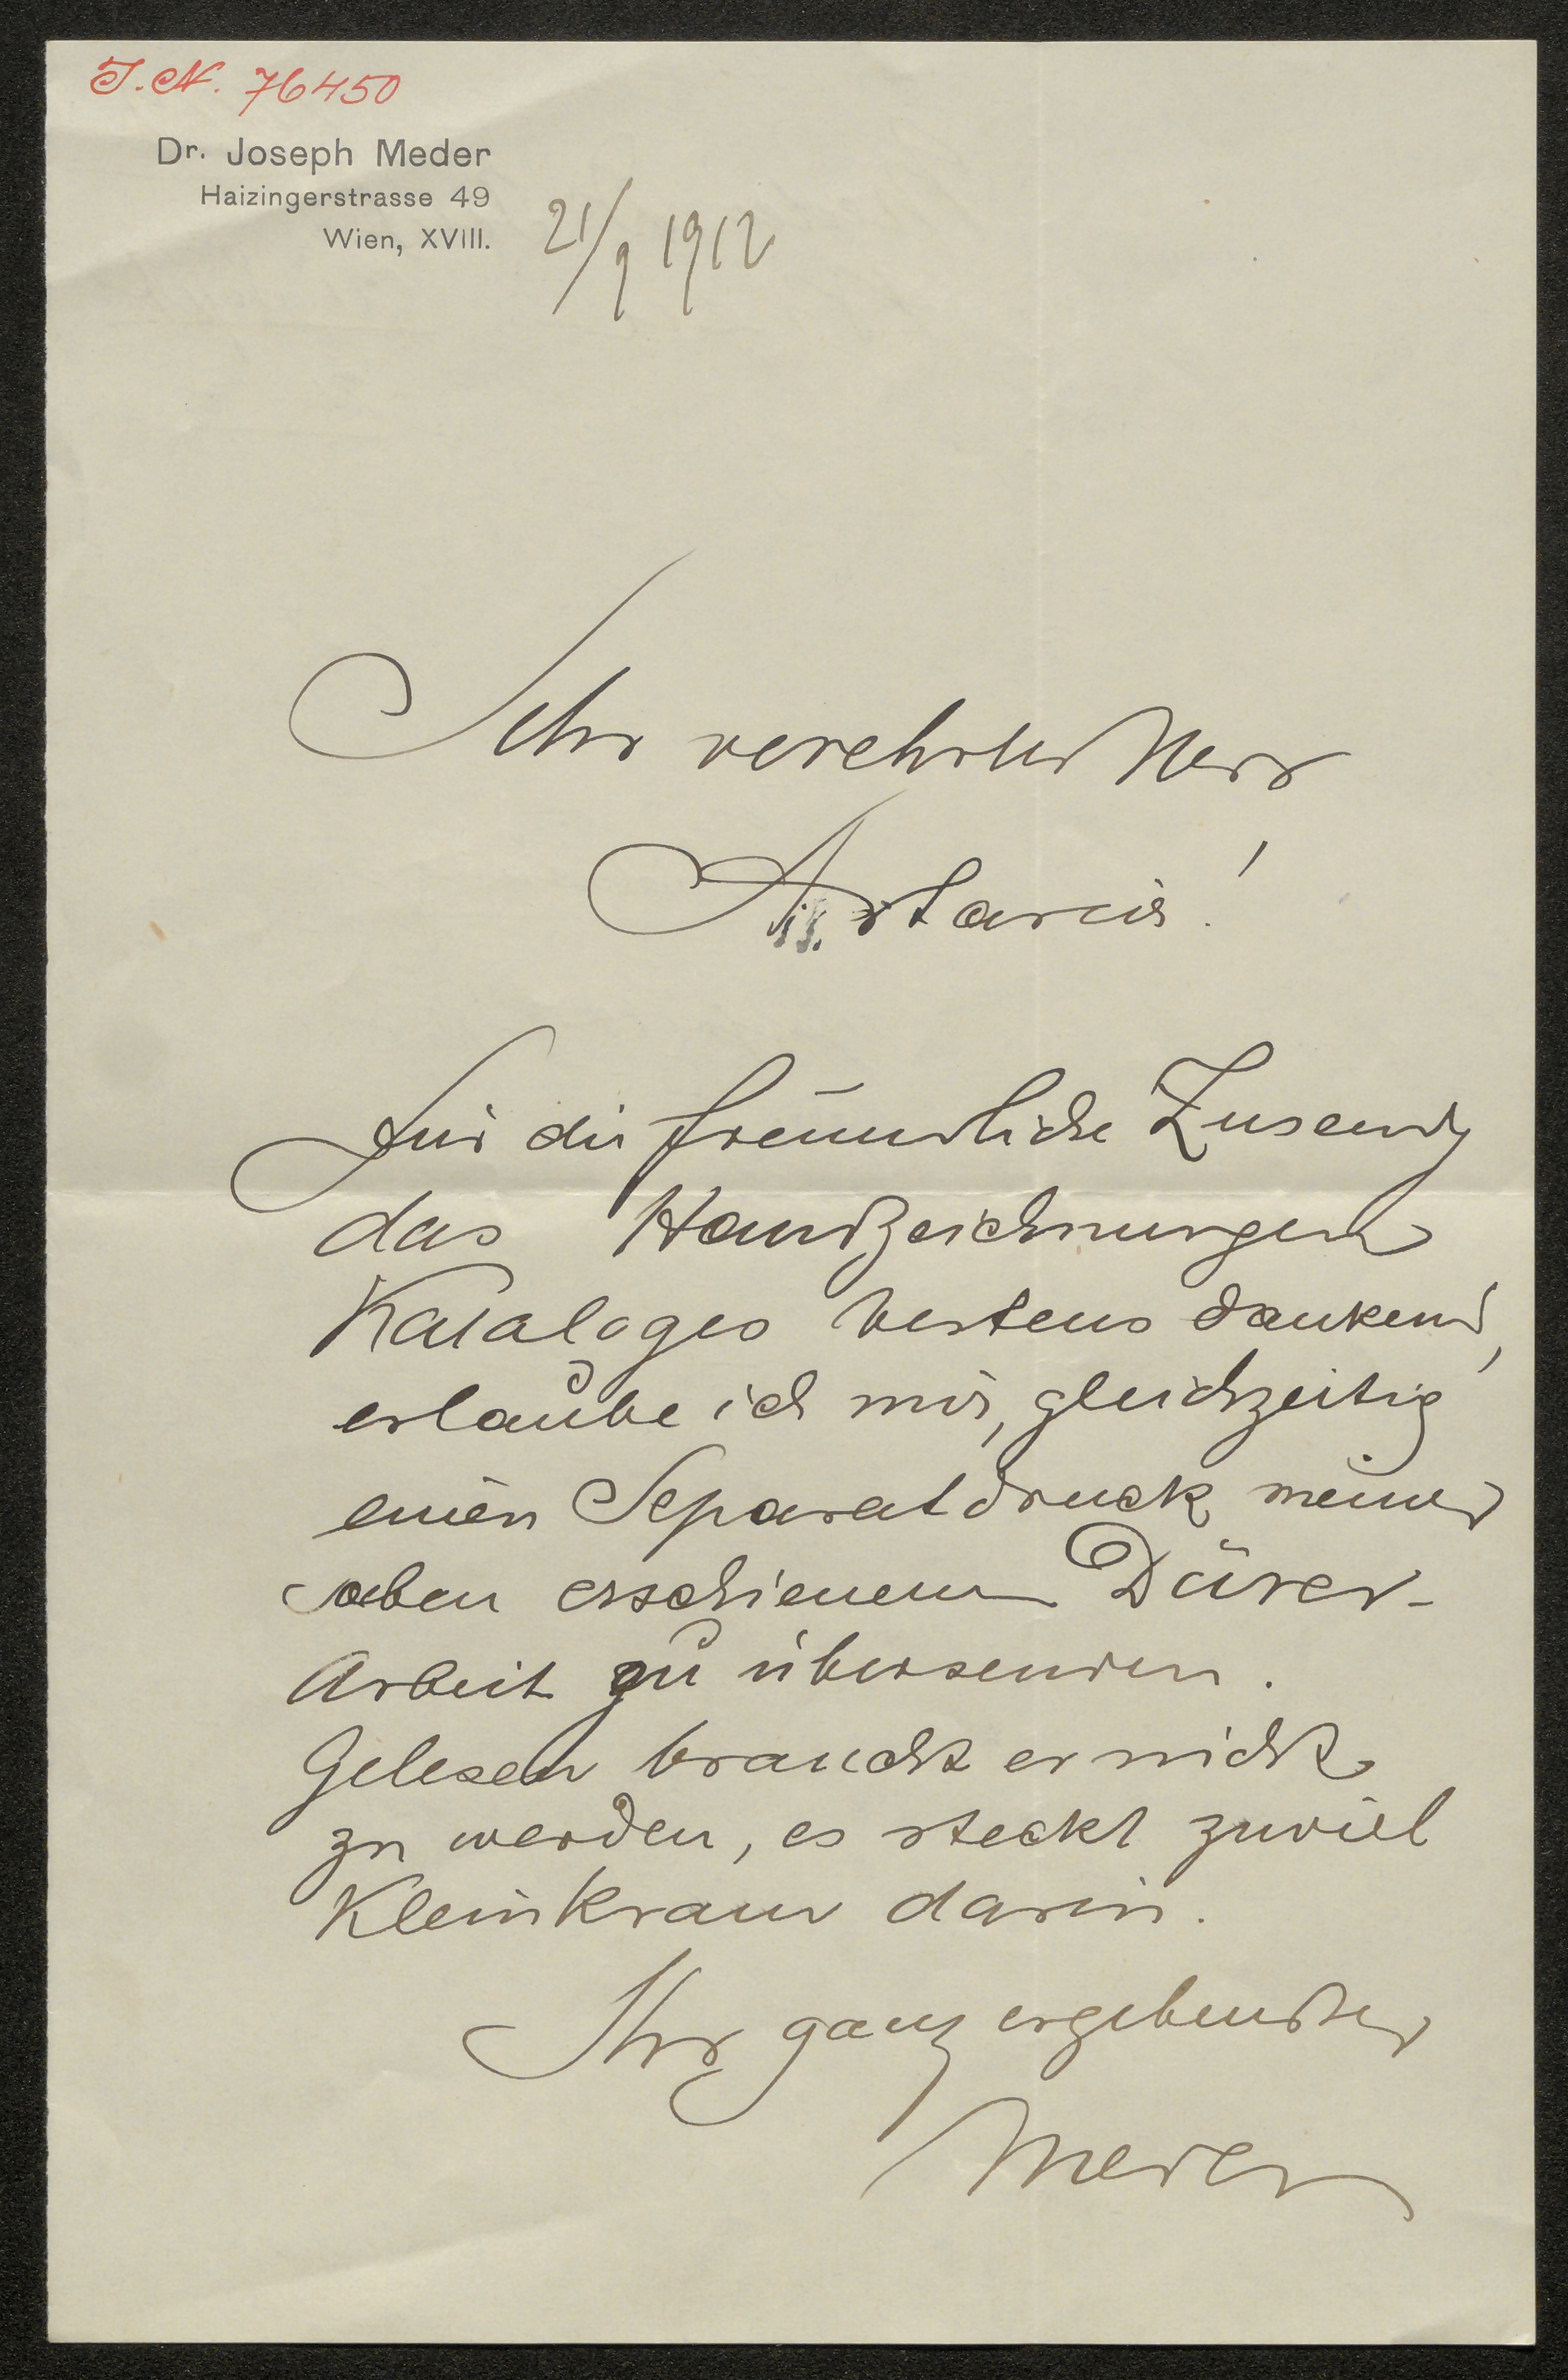 I. N. 76450
Dr. Joseph Meder
Haizingerstrasse 49
Wien, XVIII.
21/9 1912
Sehr verehrter Herr
Artaria!
Für die freundliche Zusendg
das Handzeichnungen
Kataloges bestens dankend,
erlaube ich mir, gleichzeitig
einen Separatdruck meiner
soeben erschienenen Dürer-
Arbeit zu übersenden.
Gelesen braucht er nicht
zu werden, es steckt zuviel
Kleinkram darin.
Ihr ganz ergebenster
Meder